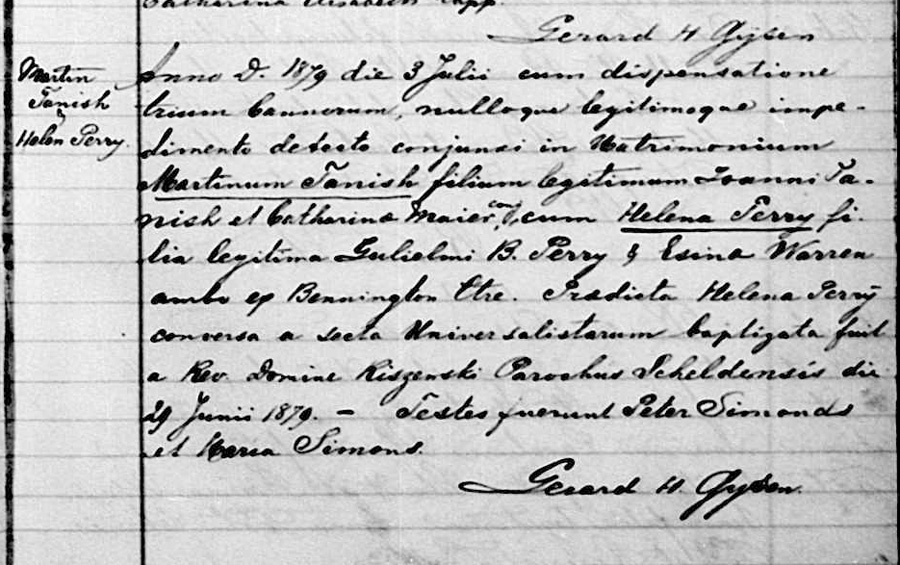 Catharina Elisabeth Capp.
Gerard H Gysen
Martin
Tanish
&
Helen Perry.
Anno D. 1879 die 3 Julii cum dispensatione
trium bannorum, nulloque legitimoque impe-
dimento detecto conjunxi in Matrimonium
Martinum Tanish filium legitimum Joanni Ta-
nish et Catharina Maier, cum Helena Perry fi-
lia legitima Gulielmi B. Perry & Esina Warren
ambo ex Bennington Ctre. Praedicta Helena Perry
conversa a secta Universalistarum baptizata fuit
a Rev. Domine Riszewski Parochus Scheldensis die
29 Junii 1879. — Testes fuerunt Peter Simonds
et Maria Simons.
Gerard H. Gysen.